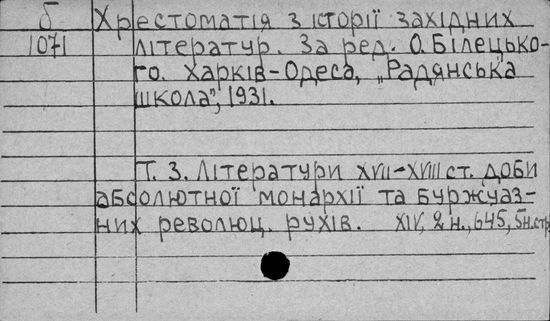 б Хрестоматія з історії західних
1071 літератур. За ред. О. Білецько-
го. Харків-Одеса, „Радянська
школа", 1931.
Т. 3. Літератури XVII-XVIII ст. доби
абсолютної монархії та буржуаз-
них революц. рухів. XIV, 2 н., 645, 5 н. стр